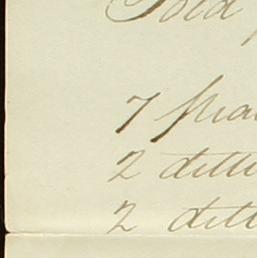 Sold
7
2 ditto
2 ditt